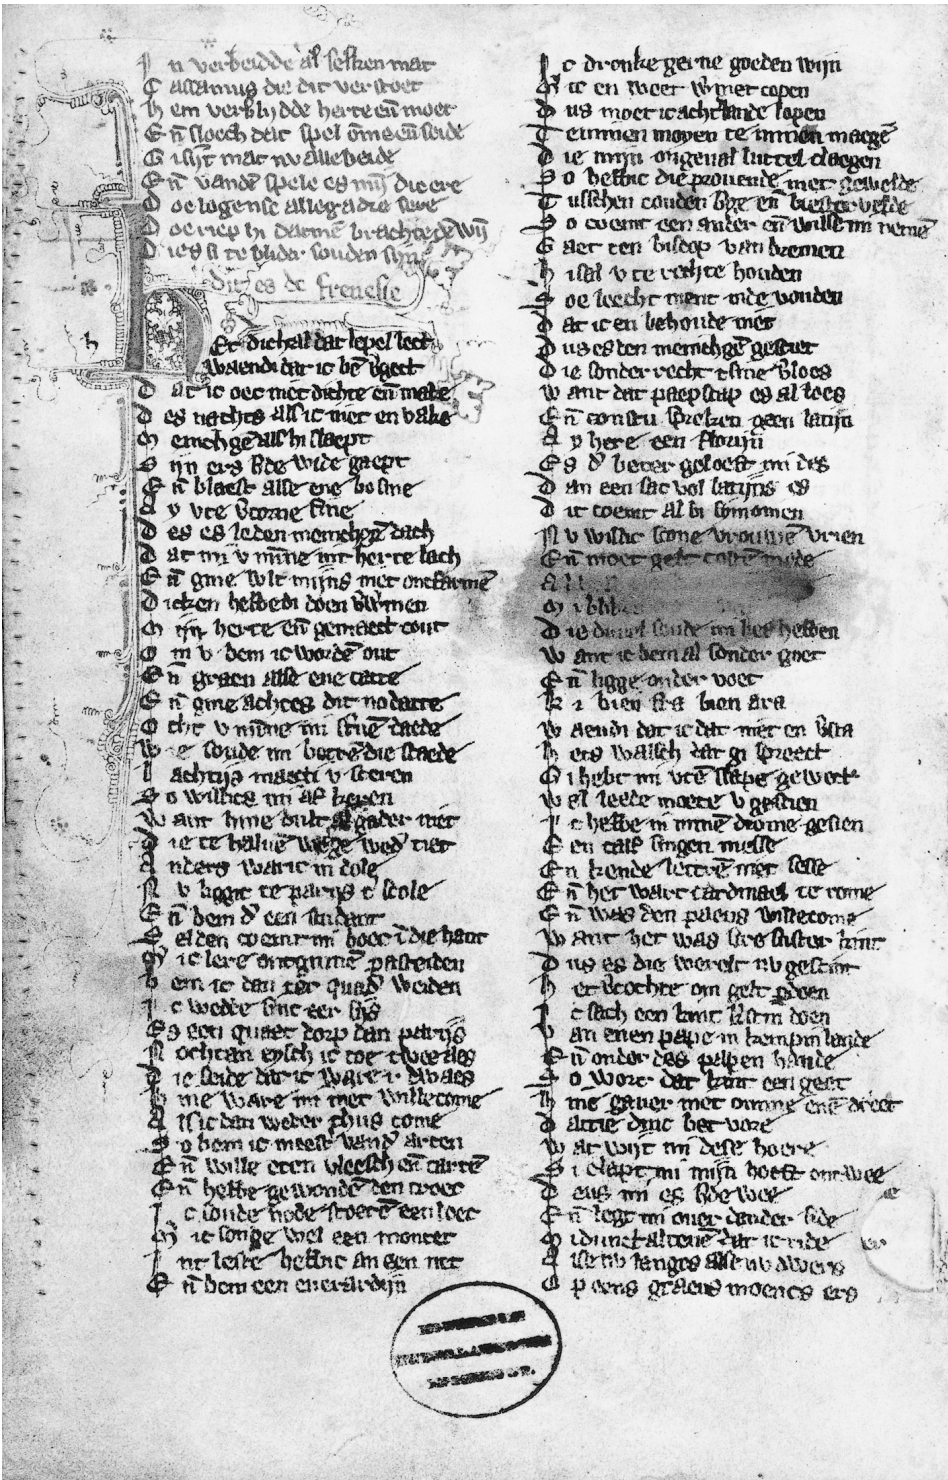 I n verbeidde al selken mat
C assamus die dit verstoet
h em verblijdde herte eñ moet
E ñ sloech dat spel ōme eñ seide
G i sijt mat nu alle beide
E ñ vandē spele es mijn die ere
D oe logense allegadre sere
D oe riep hi datmē brachte dē wijn
D ies si te blider souden sijn
dit es de frenesie
Et dichal dat lepel lect
waendi dat ic bē v̄gect
D at ic oec niet dichte eñ make
D es nachts als ic niet en vake
M enichgē als hi slaept
S ijn ers so wide gaept
E ñ blaest alse ene bosine
A y vte v̄corne fine
D es es leden menichgē dach
D at mi v mīne int herte lach
E ñ gine wilt mijns niet ontfarmē
D icken hebbedi doen v̄wermen
M ijn herte eñ gemaect cout
O m v bem ic wordē out
E ñ graeu alse ene catte
E ñ gine achtes dit no datte
O cht v mīne mi sentē dade
W ie soude mi betrē die scade
L achtijs maecti v steren
S o willics mi al keren
W ant hine duit al gader niet
D ie te haluē weghe wed' tiet
A nders waric in dole
N v ligge te parijs t scole
E ñ bem d' een student
S elden coemt mi boec ī die hant
M ic lere ontginnē pasteiden
b em ic dan t̄er quad' weiden
I c wedde sint eer sijs
E s een quaet dorp dan parijs
N ochtan eysch ic toe twee aes
D ic seide dat ic ware i dwaes
h ine ware mi niet willecome
A ls ic dan weder thus come
S o bem ic meest vand' arten
E ñ wille eten vleesch eñ tartē
E ñ hebbe gewondē den croec
I c soude node storten een loec
M ic songe wel een montet
I nt leste hebbic an een net
E ñ bem een euerardijn
I c dronke gerne goeden wijn
M ic en weet w̄met copen
D us moet ic achter lande lopen
T e minen moyen te minen maegē
D ie mijn ongeual luttel claegen
S o hebbic die prouende met gewelde
T usschen couden b̄ge eñ biestervelde
S o coemt een ander eñ wilse mi nemē
G aet ten biscop van bremen
h i sal v te rechte houden
S oe leecht ment inde vouden
D at ic en behoude niet
D us es den menichgē gesciet
D ie sonder recht tsine v̄loes
W ant dat paepscap es al loes
E ñ constu spreken geen latijn
A y here een florijn
E s d' beter geloeft mi des
D an een sac vol latijns es
D it coemt al bi symomen
N v wildic scone vrouwē vrien
E ñ moet gelt costē mede
D ie duuel soude mi bes hebben
W ant ic bem al sonder goet
E ñ ligge onder voet
K i bien fra bien ara
W aendi dat ic dat niet en v̄sta
h ets walsch dat gi spreect
G i hebt mi vtē slape gewect
W el leede moete v gescien
I c hebbe in minē drome gesien
E en calf singen messe
E n kende lettrē niet sesse
E ñ het wart cardinael te rome
E ñ was den paeus willecome
W ant het was sire suster kint
D us es die werelt nv gesint
h et v̄cochte om gelt p̄doen
I c sach een kint kerstin doen
V an enen pape in kempinlande
E ñ onder des papen hande
S o wort dat kint een geet
h ine gauer niet omme enē dreet
D attie dinc bet vore
W at wijt mi dese hoere
S i clapt mi mijn hoeft ontwee
D eus mi es so wee
E ñ legt mi ouer dander side
M i dunct altenē dat ic ride
A lse nv langes alse nv dwers
O p eens graeus moencs ers